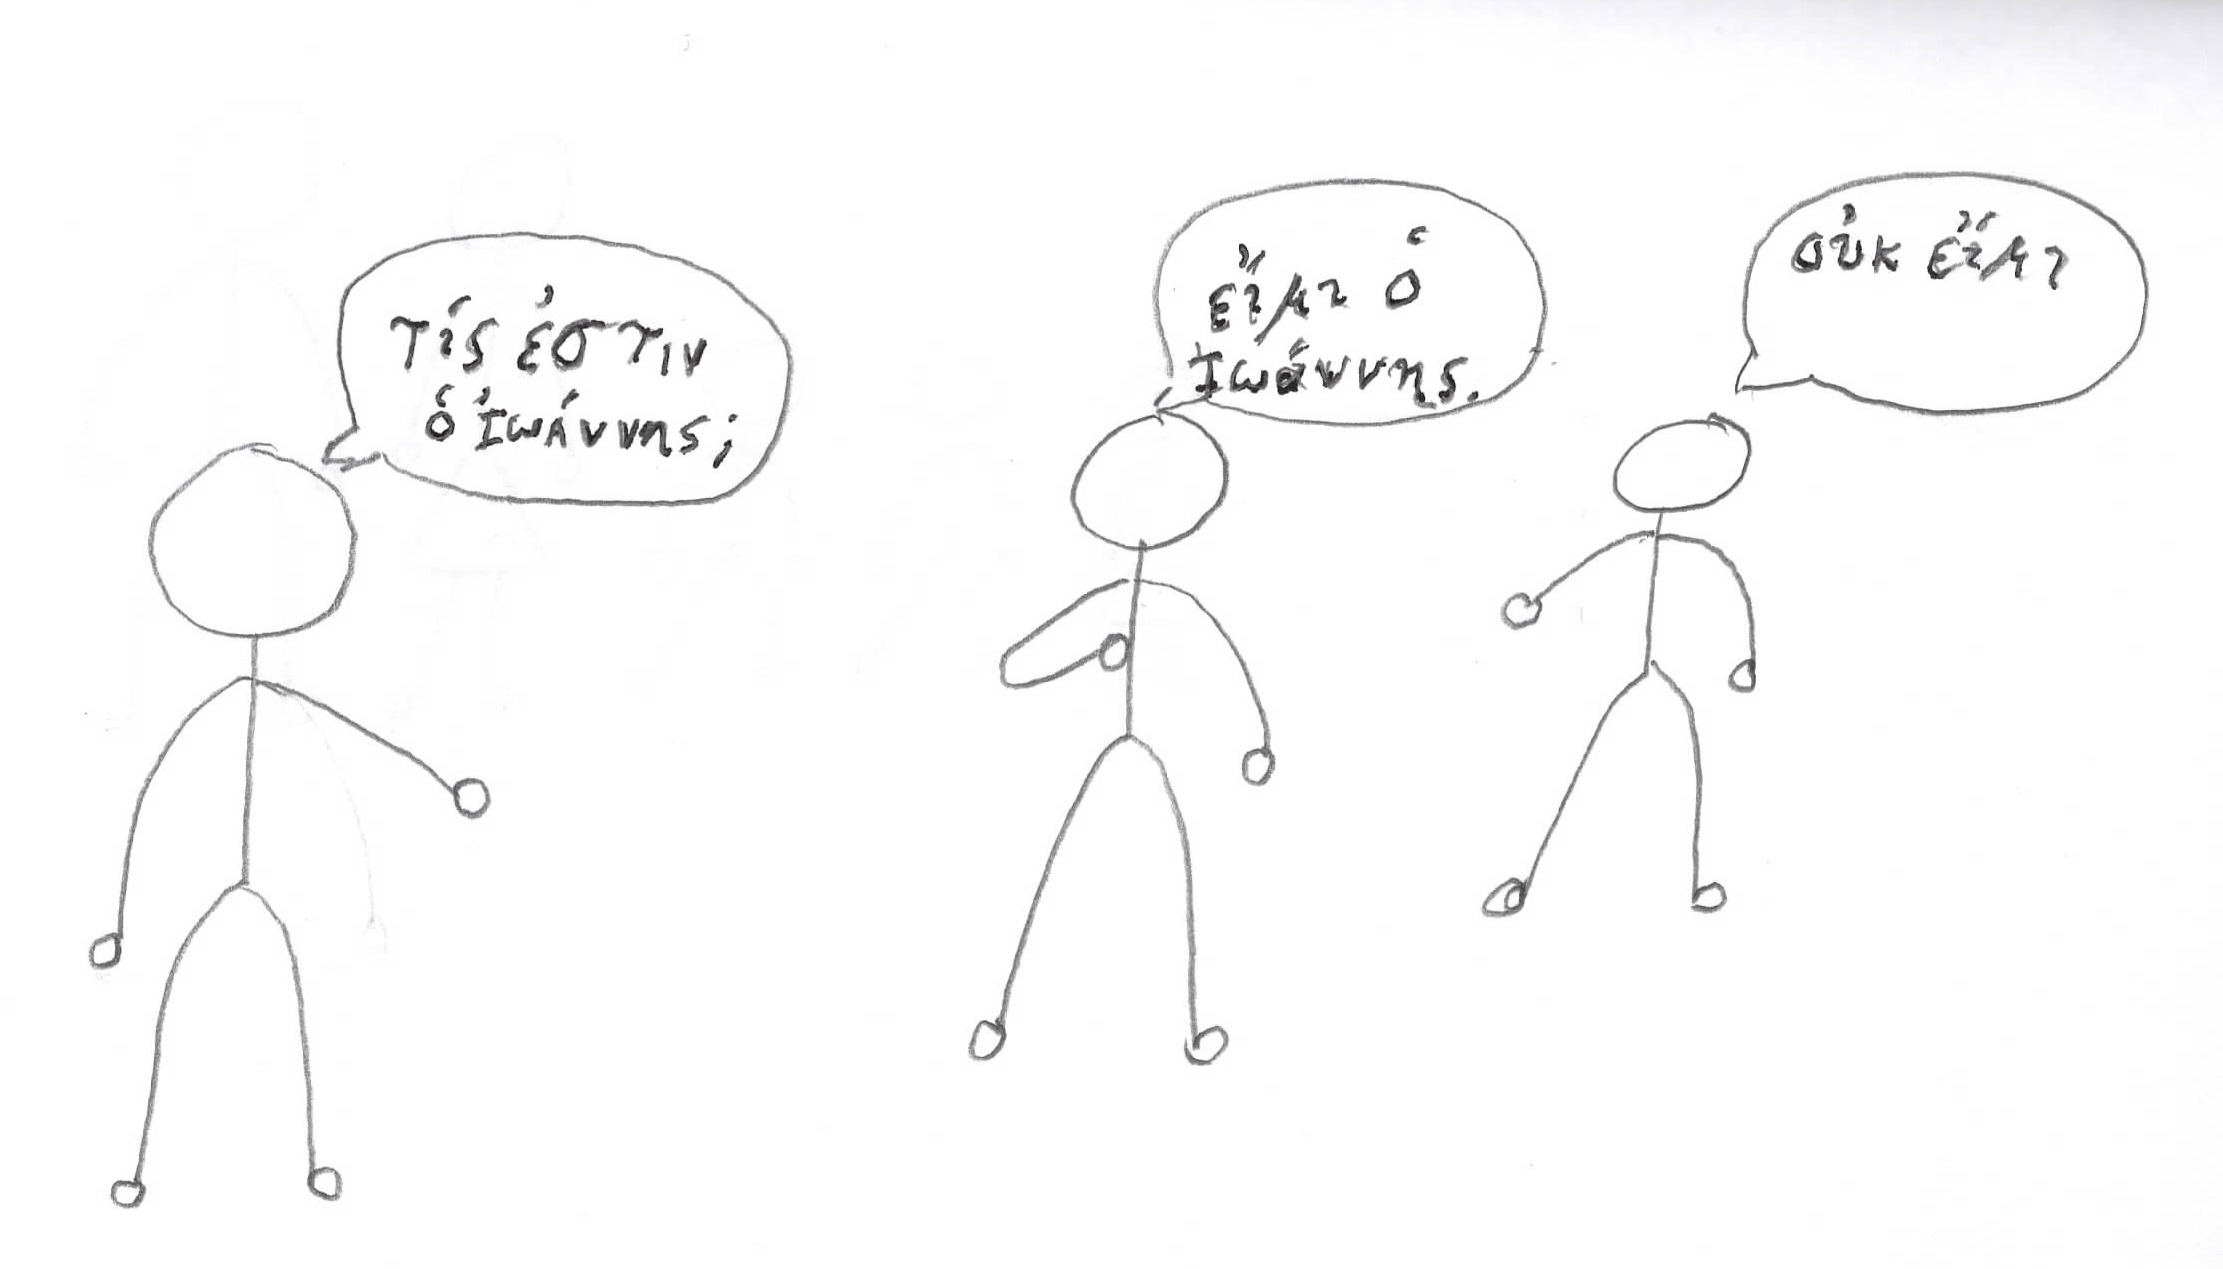 τίς ἐστιν
ὁ Ἰωάννης;
εἴμι ὁ
Ἰωάννης.
οὐκ εἴμι